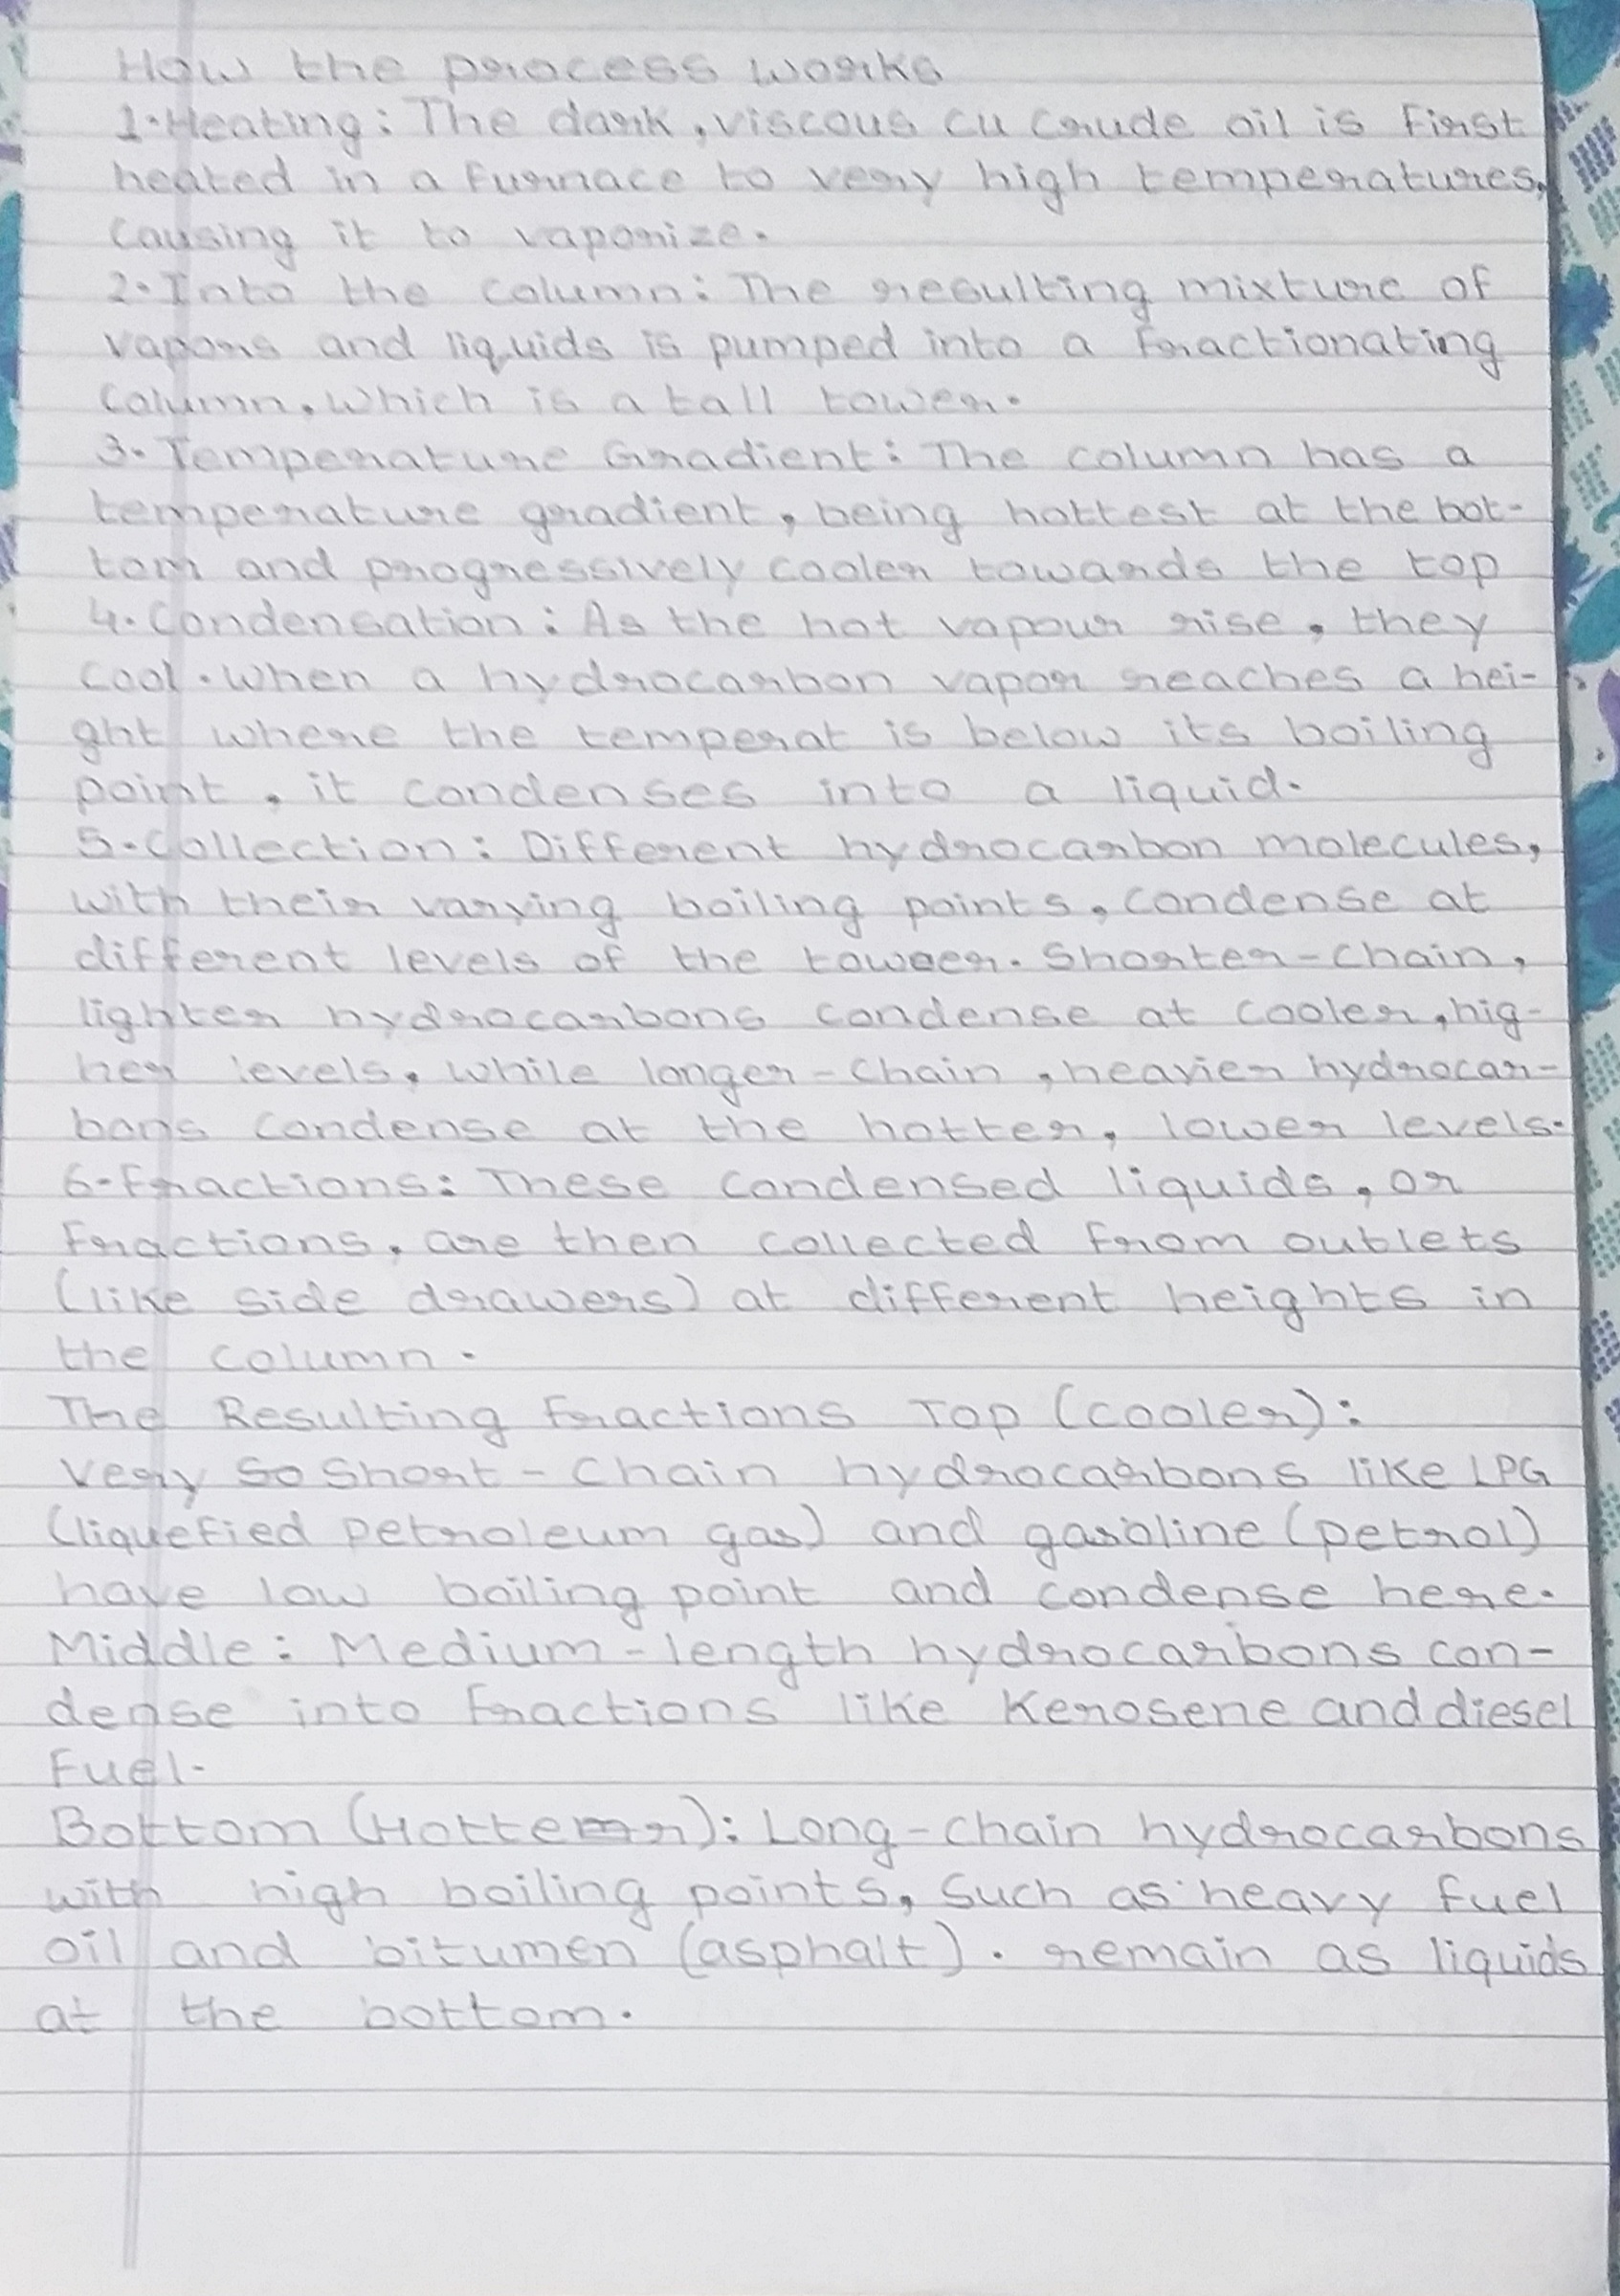 How the process works
1. Heating: The dark, viscous cu crude oil is first
heated in a furnace to very high temperatures,
causing it to vaporize.
2. Into the column: The resulting mixture of
vapors and liquids is pumped into a fractionating
column, which is a tall tower.
3. Temperature Gradient: The column has a
temperature gradient, being hottest at the bot-
tom and progressively cooler towards the top
4. Condensation: As the hot vapour rise, they
cool. When a hydrocarbon vapor reaches a hei-
ght where the temperat is below its boiling
point, it condenses into a liquid.
5. Collection: Different hydrocarbon molecules,
with their varying boiling points, condense at
different levels of the toweer. Shorter-chain,
lighter hydrocarbons condense at cooler, hig-
her levels, while longer-chain, heavier hydrocar-
bons condense at the hotter, lower levels.
6. Fractions: These condensed liquids, or
fractions, are then collected from outlets
(like side drawers) at different heights in
the column.
The Resulting Fractions Top (cooler):
Very So Short-Chain hydrocarbons like LPG
(liquefied petroleum gas) and gasoline (petrol)
have low boiling point and condense here.
Middle: Medium-length hydrocarbons con-
dense into fractions like Kerosene and diesel
Fuel.
Bottom (Hotter): Long-chain hydrocarbons
with high boiling points, Such as heavy fuel
oil and bitumen (asphalt). remain as liquids
at the bottom.